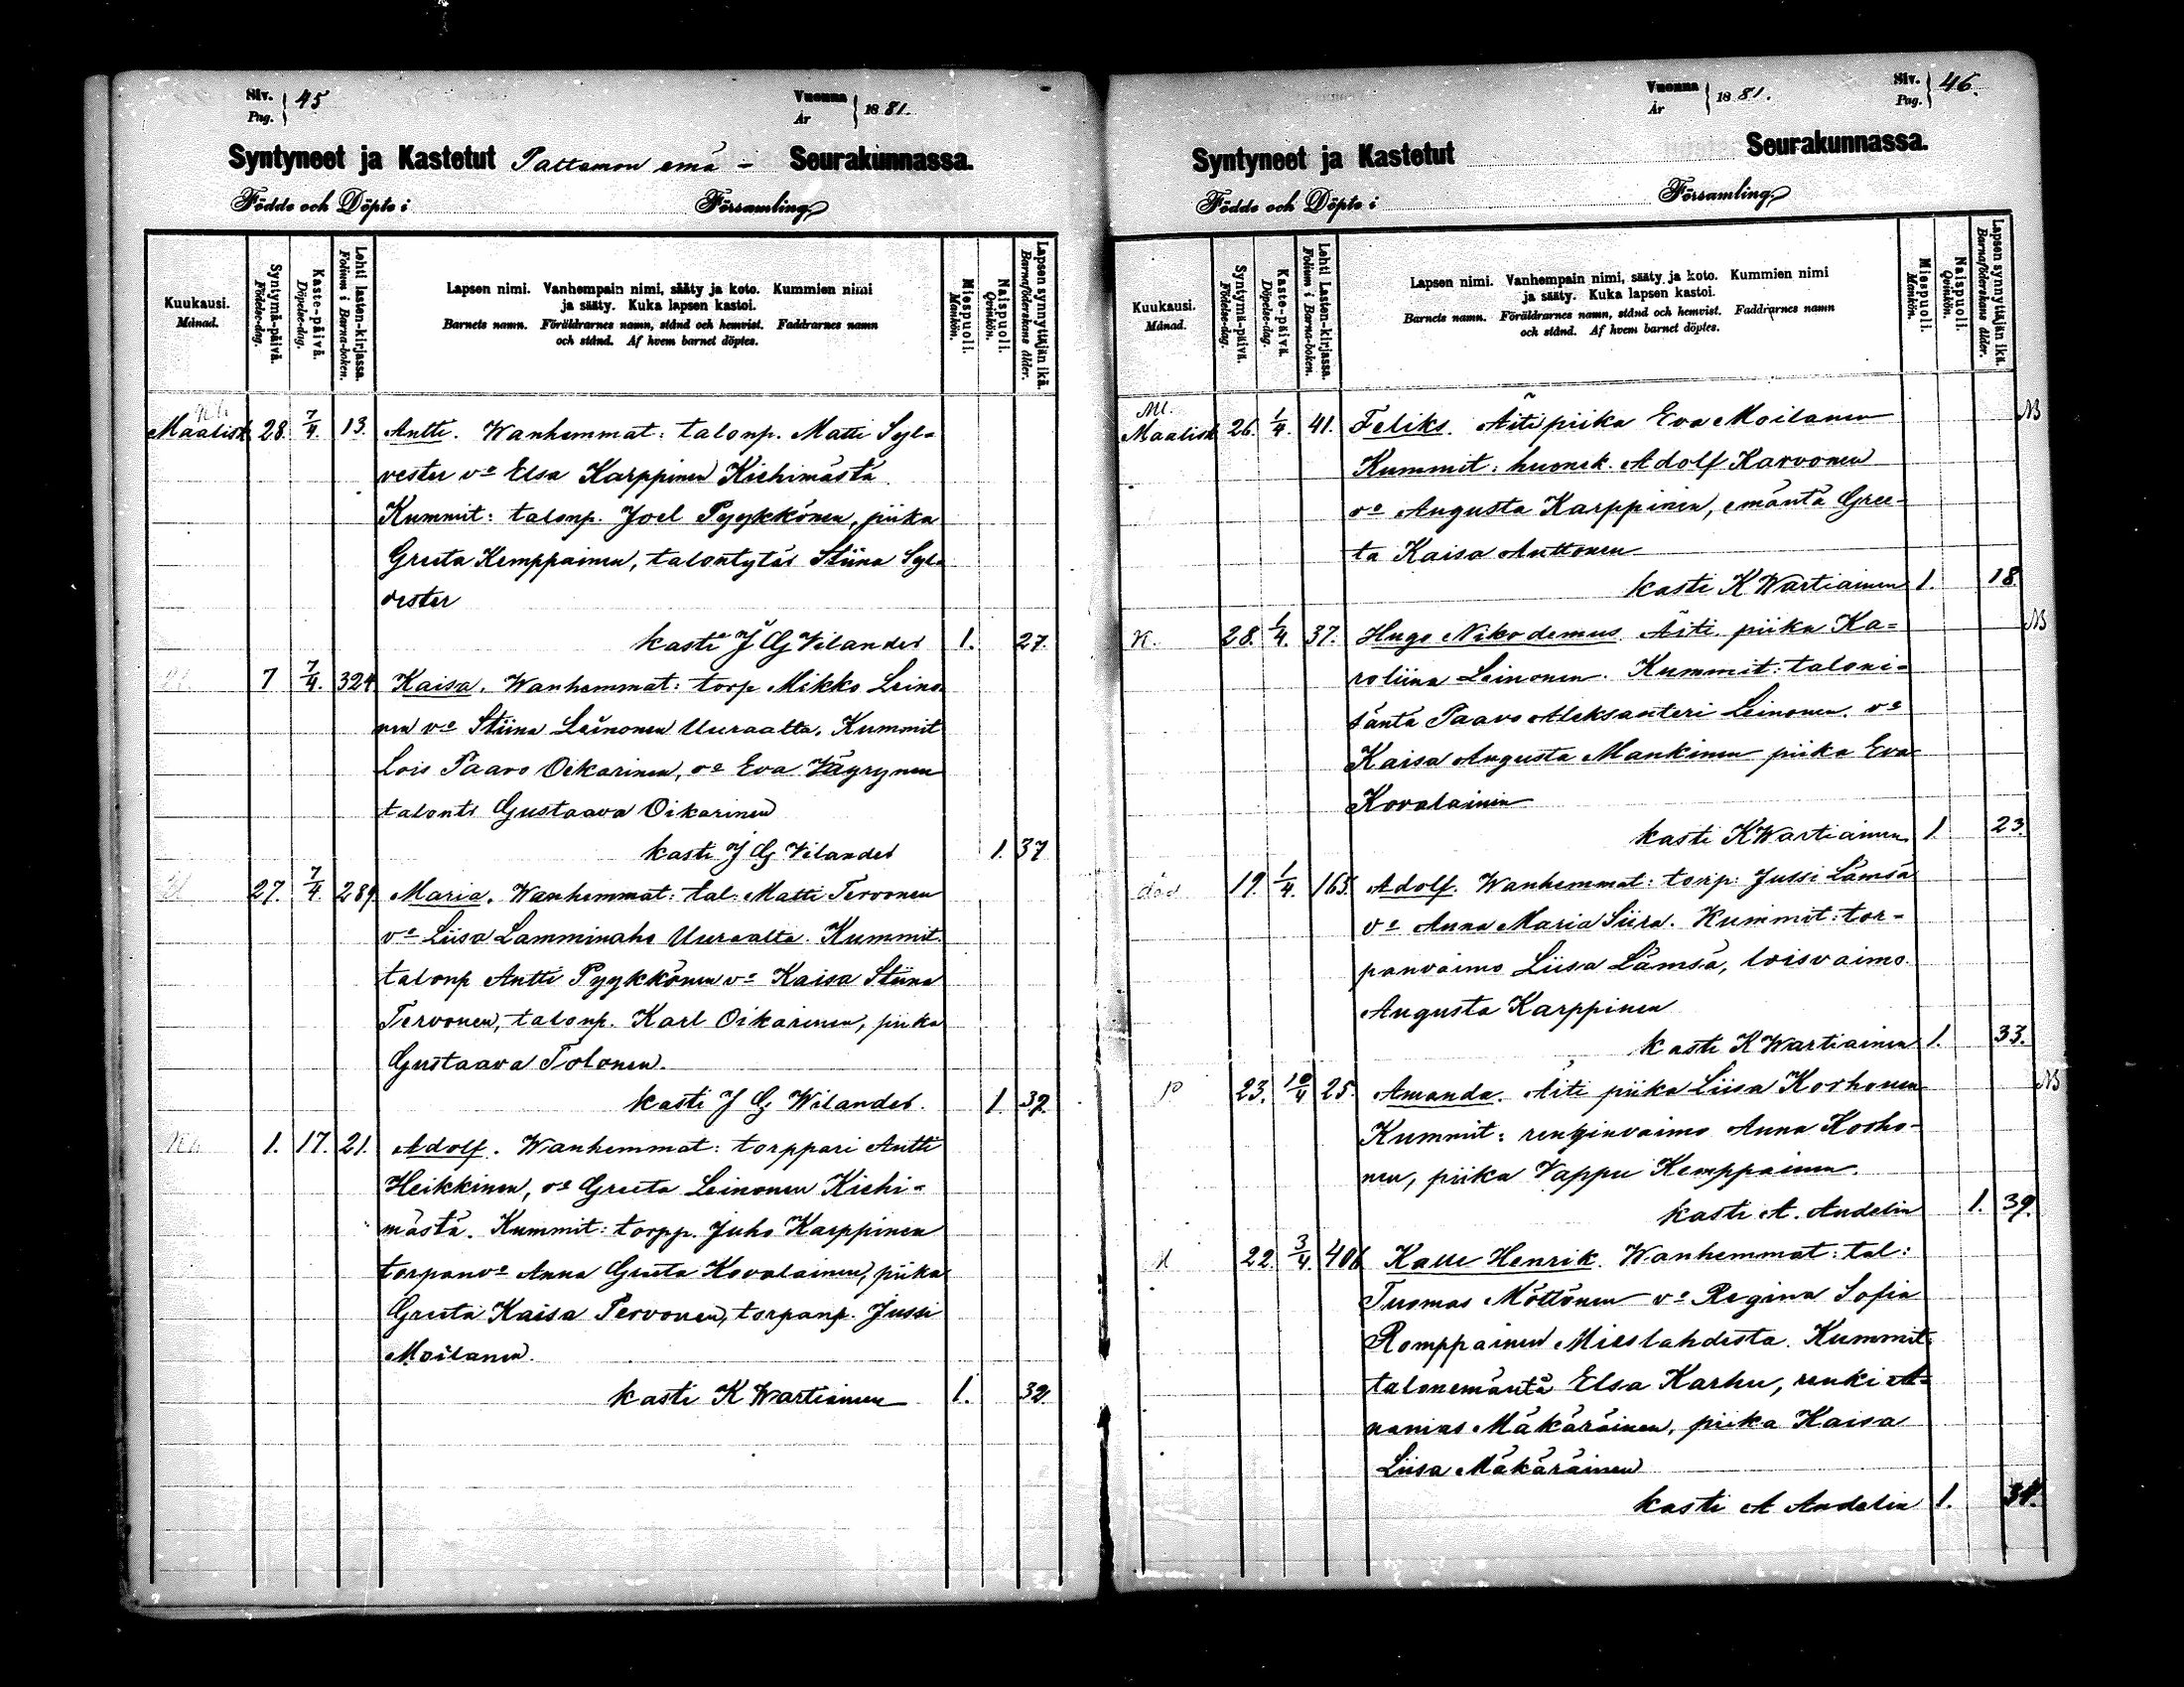 Siv. 45
Pag.
Vuonna 1881.
År
Syntyneet ja Kastetut Paltamon emä- Seurakunnassa.
Födde och Döpte i Församling
Kuukausi.
Månad.
Syntymä-päivä.
Födelse-dag.
Kaste-päivä.
Döpelse-dag.
Lehti lasten-kirjassa.
Folium i Barna-boken.
Lapsen nimi. Vanhempain nimi, sääty ja koto. Kummien nimi
ja sääty. Kuka lapsen kastoi.
Barnets namn. Föräldrarnes namn, stånd och hemvist. Faddrarnes namn
och stånd. Af hvem barnet döptes.
Miespuoli.
Mankön.
Naispuoli.
Qvinkön.
Lapsen synnyttäjän ikä.
Barnaföderskans ålder.
Maalisk 28. 7/4. 13. Antti. Wanhemmat: talonp. Matti Syl=
vester vo Elsa Karppinen Kiehimästä
Kummit: talonp. Joel Pyykkönen, piika
Greeta Kemppainen, talontytär Stiina Syl=
vester
kasti J G Vilander 1. 27.
7 7/4. 324 Kaisa. Wanhemmat: torp Mikko Leino
nen vo Stiina Leinonen Uuraalta. Kummit
lois Paavo Oikarinen, vo Eva Väyrynen
talonts Gustaava Oikarinen
kasti J G Vilander 1. 37
27. 7/4. 289 Maria. Wanhemmat: tal: Matti Tervonen
vo Liisa Lamminaho Uuraalta. Kummit.
talonp Antti Pyykkönen vo Kaisa Stiina
Tervonen, talonp. Karl Oikarinen, piika
Gustaava Tolonen.
kasti J G Wilander. 1. 39.
1. 17. 21. Adolf. Wanhemmat: torppari Antti
Heikkinen, vo Greeta Leinonen Kiehi=
mästä. Kummit: torpp. Juho Karppinen
torpanvo Anna Greeta Kovalainen, piika
Greeta Kaisa Tervonen, torpanp. Jussi
Moilanen.
kasti K Wartiainen 1. 32.
Vuonna 1881.
År
Siv. 46.
Pag.
Syntyneet ja Kastetut Seurakunnassa.
Födde och Döpte i Församling
Kuukausi.
Månad.
Syntymä-päivä.
Födelse-dag.
Kaste-päivä.
Döpelse-dag.
Lehti Lasten-kirjassa.
Folium i Barna-boken.
Lapsen nimi. Vanhempain nimi, sääty ja koto. Kummien nimi
ja sääty. Kuka lapsen kastoi.
Barnets namn. Föräldrarnes namn, stånd och hemvist. Faddrarnes namn
och stånd. Af hvem barnet döptes.
Miespuoli.
Mankön.
Naispuoli.
Qvinkön.
Lapsen synnyttäjän ikä.
Barnaföderskans ålder.
Maalisk 26. 1/4. 41. Feliks. Äiti piika Eva Moilanen NB
Kummit: huonek. Adolf Karvonen
vo Augusta Karppinen, emäntä Gree-
ta Kaisa Anttonen
kasti K Wartiainen 1. 18.
K. 28. 1/4. 37. Hugo Nikodemus. Äiti. piika Ka= NB
roliina Leinonen. Kummit: taloni=
säntä Paavo Aleksanteri Leinonen. vo
Kaisa Augusta Mankinen piika Eva
Kovalainen
kasti K Wartiainen 1. 23.
död 19. 1/4. 165. Adolf. Wanhemmat: torp: Jussi Lämsä
vo Anna Maria Siira. Kummit: tor-
panvaimo Liisa Lämsä, loisvaimo
Augusta Karppinen
kasti K Wartiainen 1. 33.
P 23. 10/4 25. Amanda. Äiti piika Liisa Korhonen NB
Kummit: renginvaimo Anna Korho-
nen, piika Vappu Kemppainen.
kasti A. Andelin 1. 39.
22. 3/4. 406 Kalle Henrik. Wanhemmat: tal:
Tuomas Möttönen vo Regina Sofia
Romppainen Mieslahdesta. Kummit
talonemäntä Elsa Karhu, renki A=
nanias Mäkäräinen, piika Kaisa
Liisa Mäkäräinen
kasti A Andelin 1. 34.